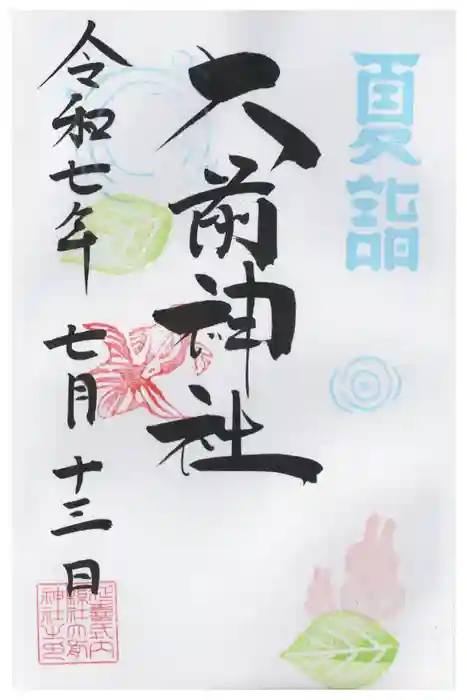 夏詣
大前神社
令和七年 七月十三日
延喜式内
縣社大前
神社之印